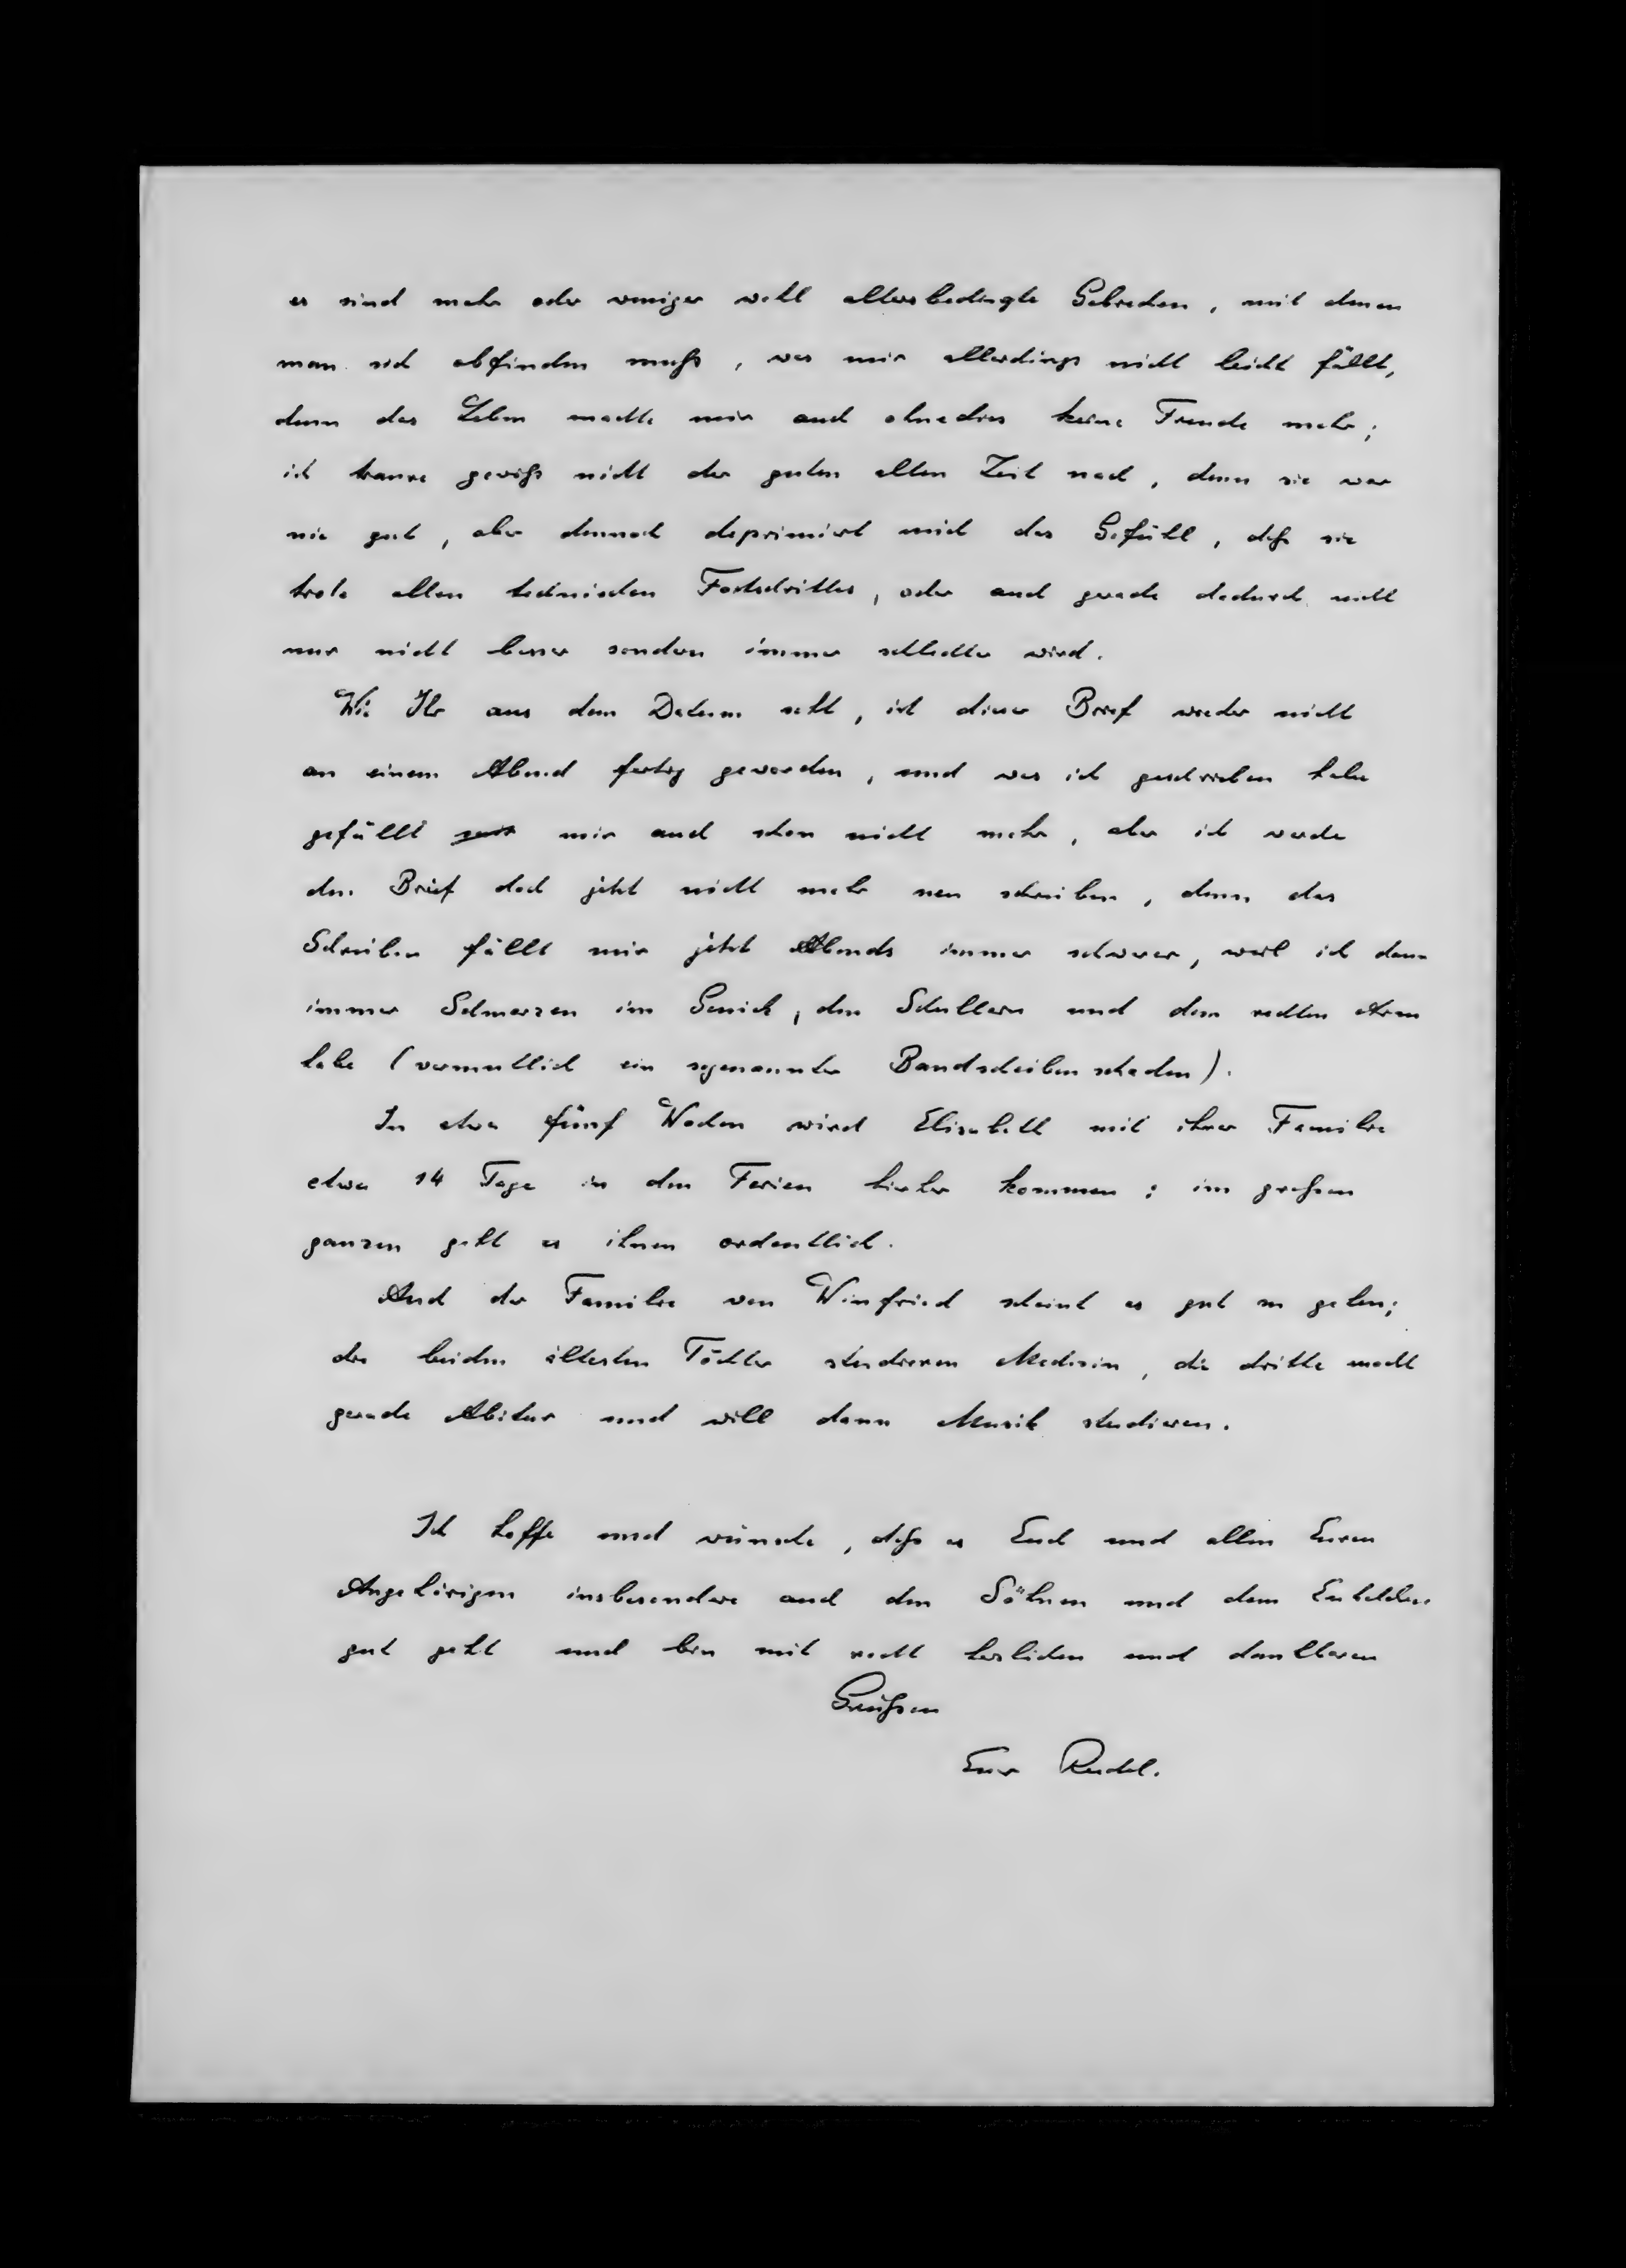 es sind mehr oder weniger wohl altersbedingte Gebrechen, mit denen
man sich abfinden muß, was mir allerdings nicht leicht fällt,
denn das Leben machte mir auch ohnedies keine Freude mehr;
ich traure gewiß nicht der guten alten Zeit nach, denn sie war
nie gut, aber dennoch deprimiert mich das Gefühl, daß sie
trotz allen technischen Fortschrittes, oder auch gerade dadurch nicht
nur nicht besser sondern immer schlechter wird.
Wie Ihr aus dem Datum seht, ist dieser Brief wieder nicht
an einem Abend fertig geworden, und was ich geschrieben habe
gefällt mir auch schon nicht mehr, aber ich werde
den Brief doch jetzt nicht mehr neu schreiben, denn das
Schreiben fällt mir jetzt Abends immer schwerer, weil ich dann
immer Schmerzen im Genick, den Schultern und dem rechten Arm
habe (vermutlich ein sogenannter Bandscheibenschaden).
In etwa fünf Wochen wird Elisabeth mit ihrer Familie
etwa 14 Tage in den Ferien hierher kommen; im großen
ganzen geht es ihnen ordentlich.
Auch der Familie von Winfried scheint es gut zu gehen;
die beiden ältesten Töchter studieren Medizin, die dritte macht
gerade Abitur und will dann Musik studieren.
Ich hoffe und wünsche, daß es Euch und allen Euren
Angehörigen insbesondere auch den Söhnen und dem Enkelchen
gut geht und bin mit recht herzlichen und dankbaren
Grüßen
Euer Rudel.